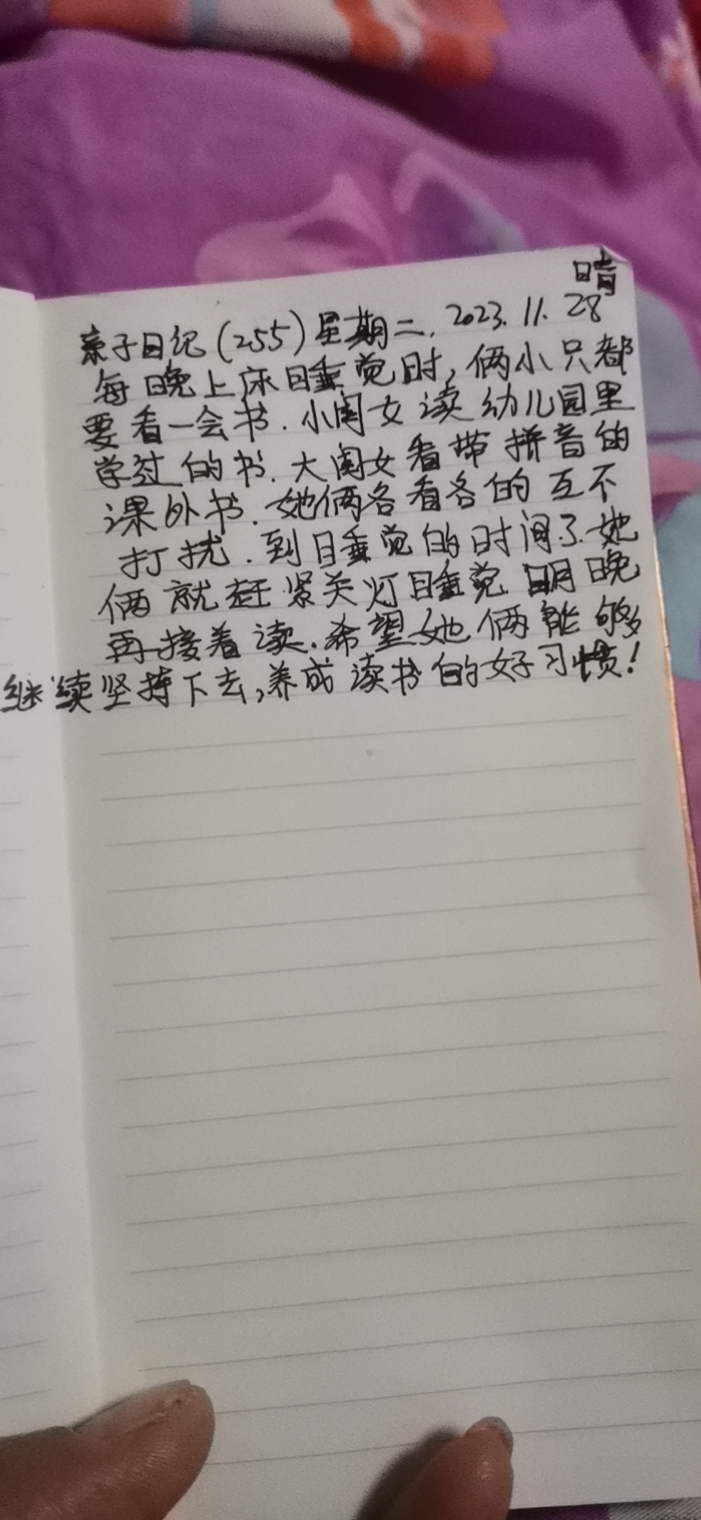 晴
亲子日记(255)星期二. 2023. 11. 28
每晚上床睡觉时, 俩小只都
要看一会书. 小闺女读幼儿园里
学过的书. 大闺女看带拼音的
课外书. 她俩各看各的互不
打扰. 到睡觉的时间了. 她
俩就赶紧关灯睡觉 明晚
再接着读. 希望她俩能够
继续坚持下去, 养成读书的好习惯!